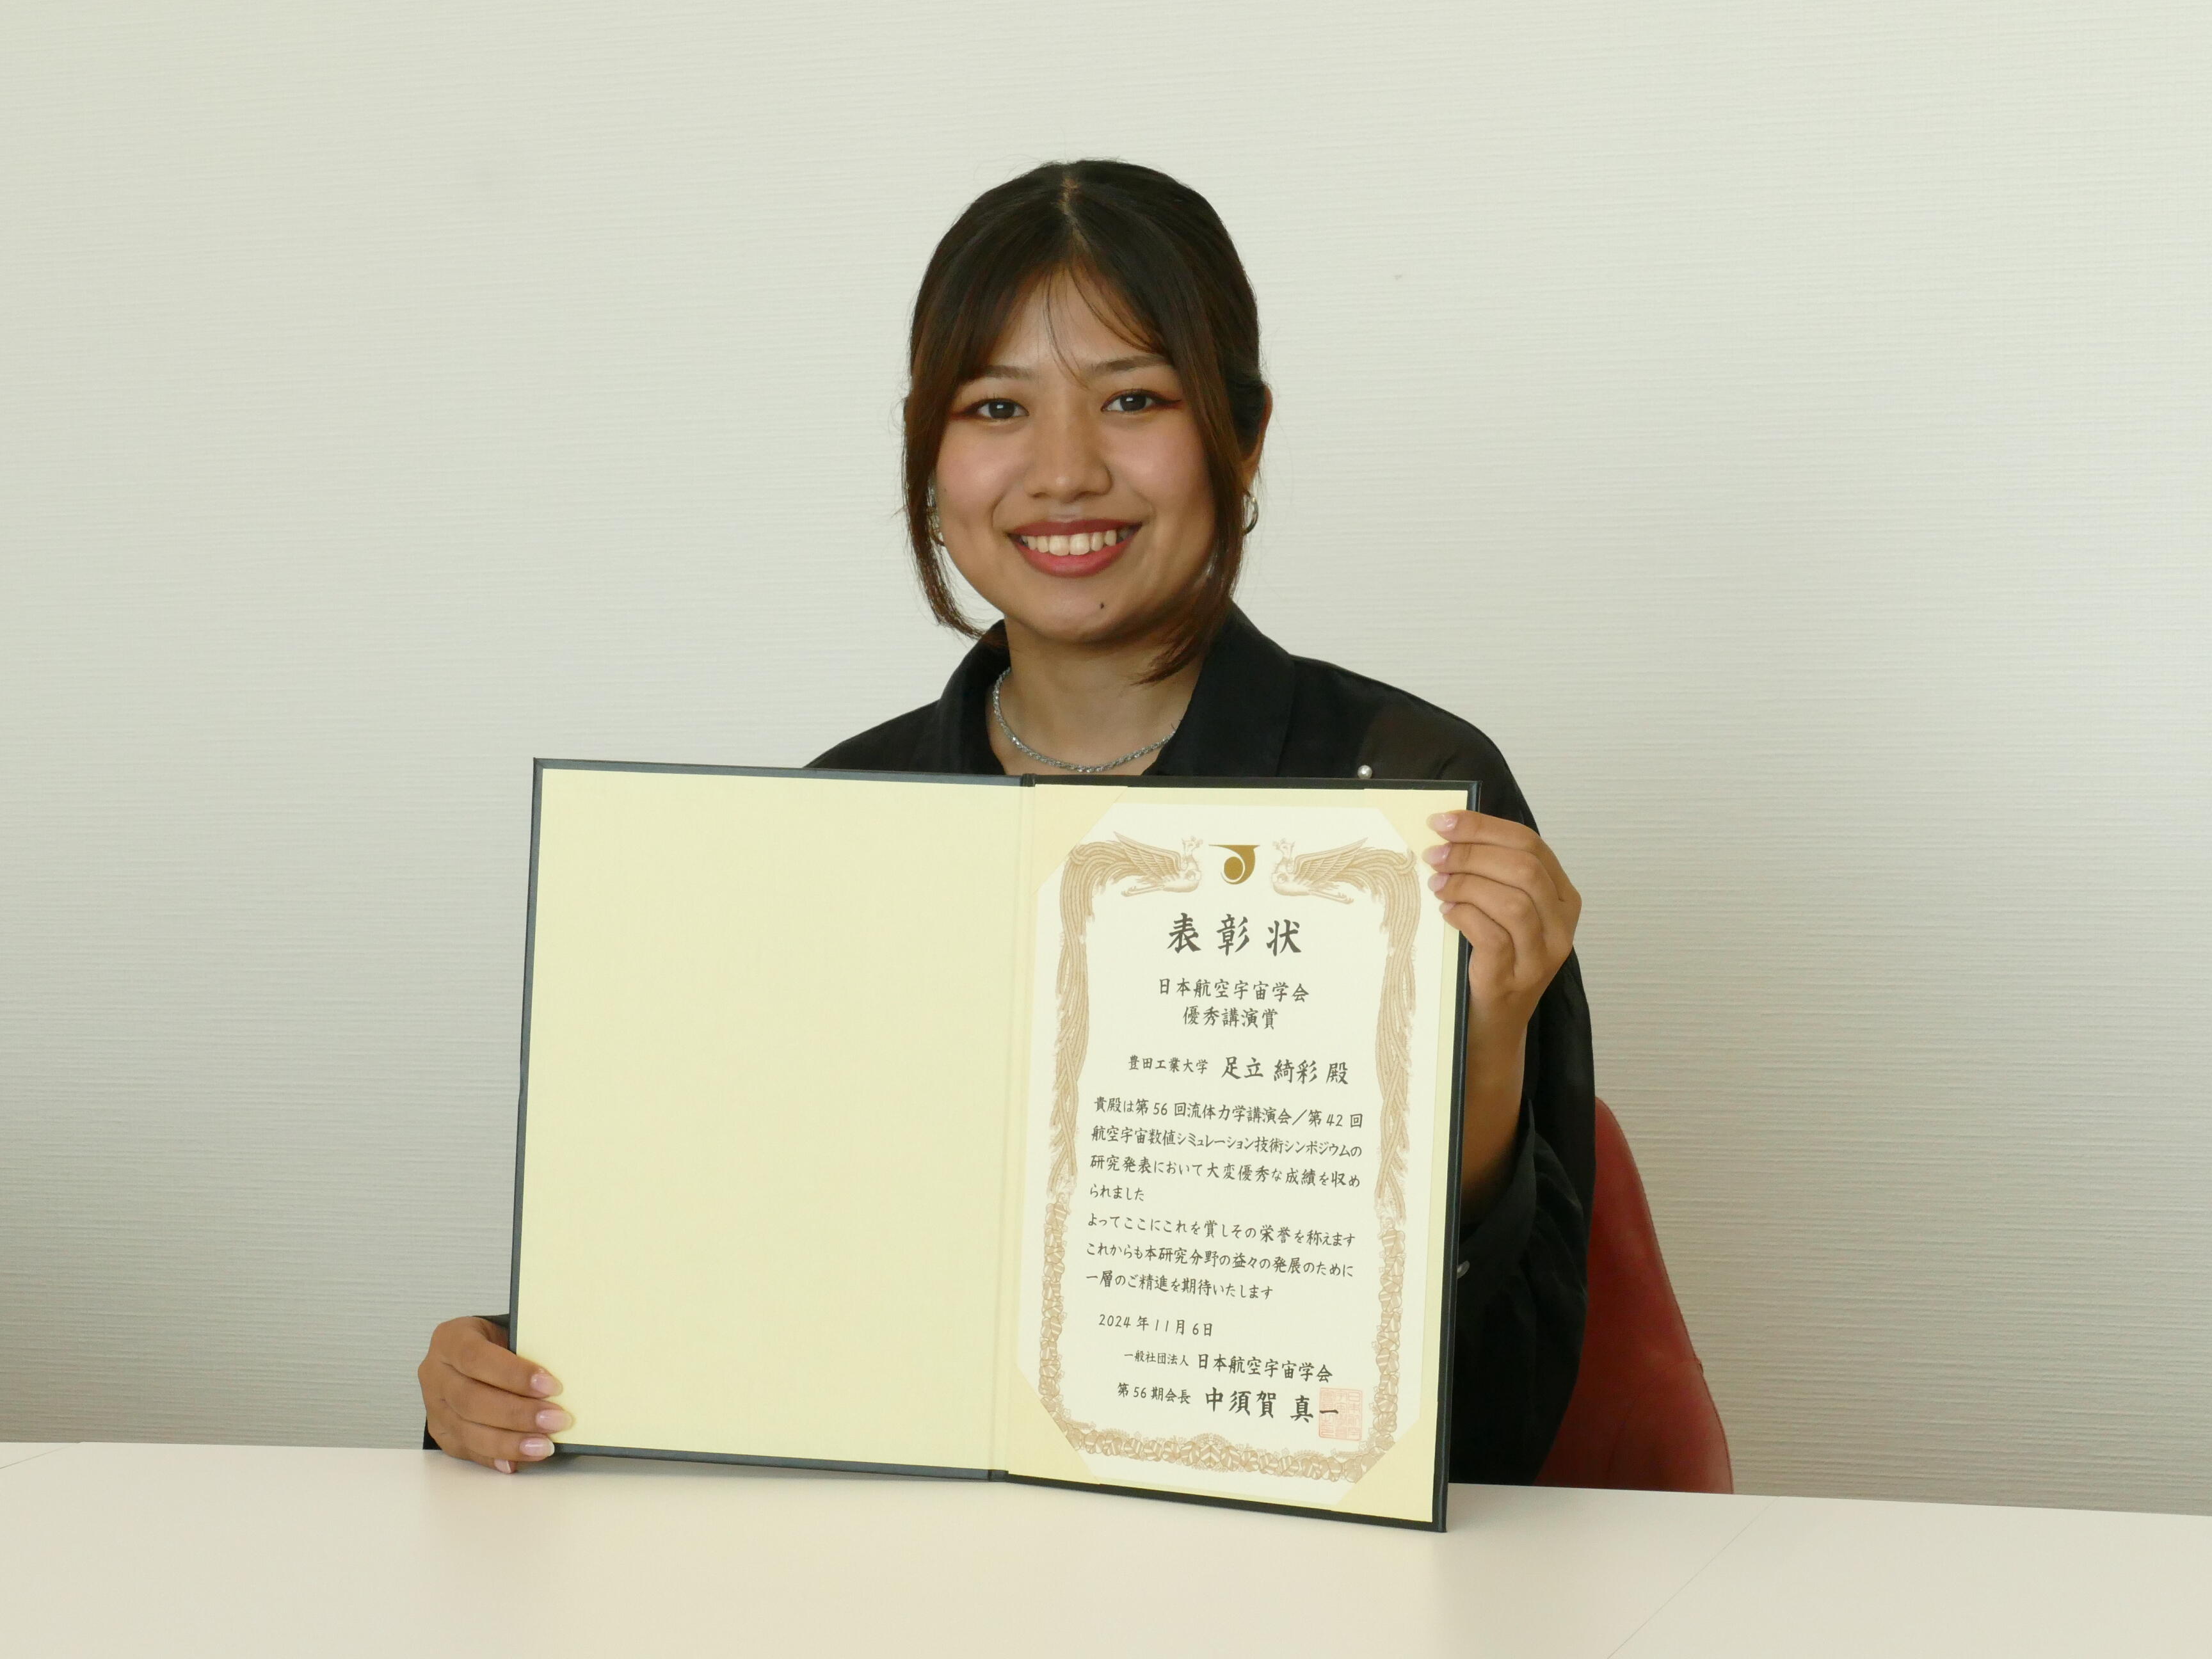 表彰状
日本航空宇宙学会
優秀講演賞
豊田工業大学 足立 綺彩 殿
貴殿は第56回流体力学講演会／第42回
航空宇宙数値シミュレーション技術シンポジウムの
研究発表において大変優秀な成績を収め
られました
よってここにこれを賞しその栄誉を称えます
これからも本研究分野の益々の発展のために
一層のご精進を期待いたします
2024年11月6日
一般社団法人 日本航空宇宙学会
第56期会長 中須賀 真一